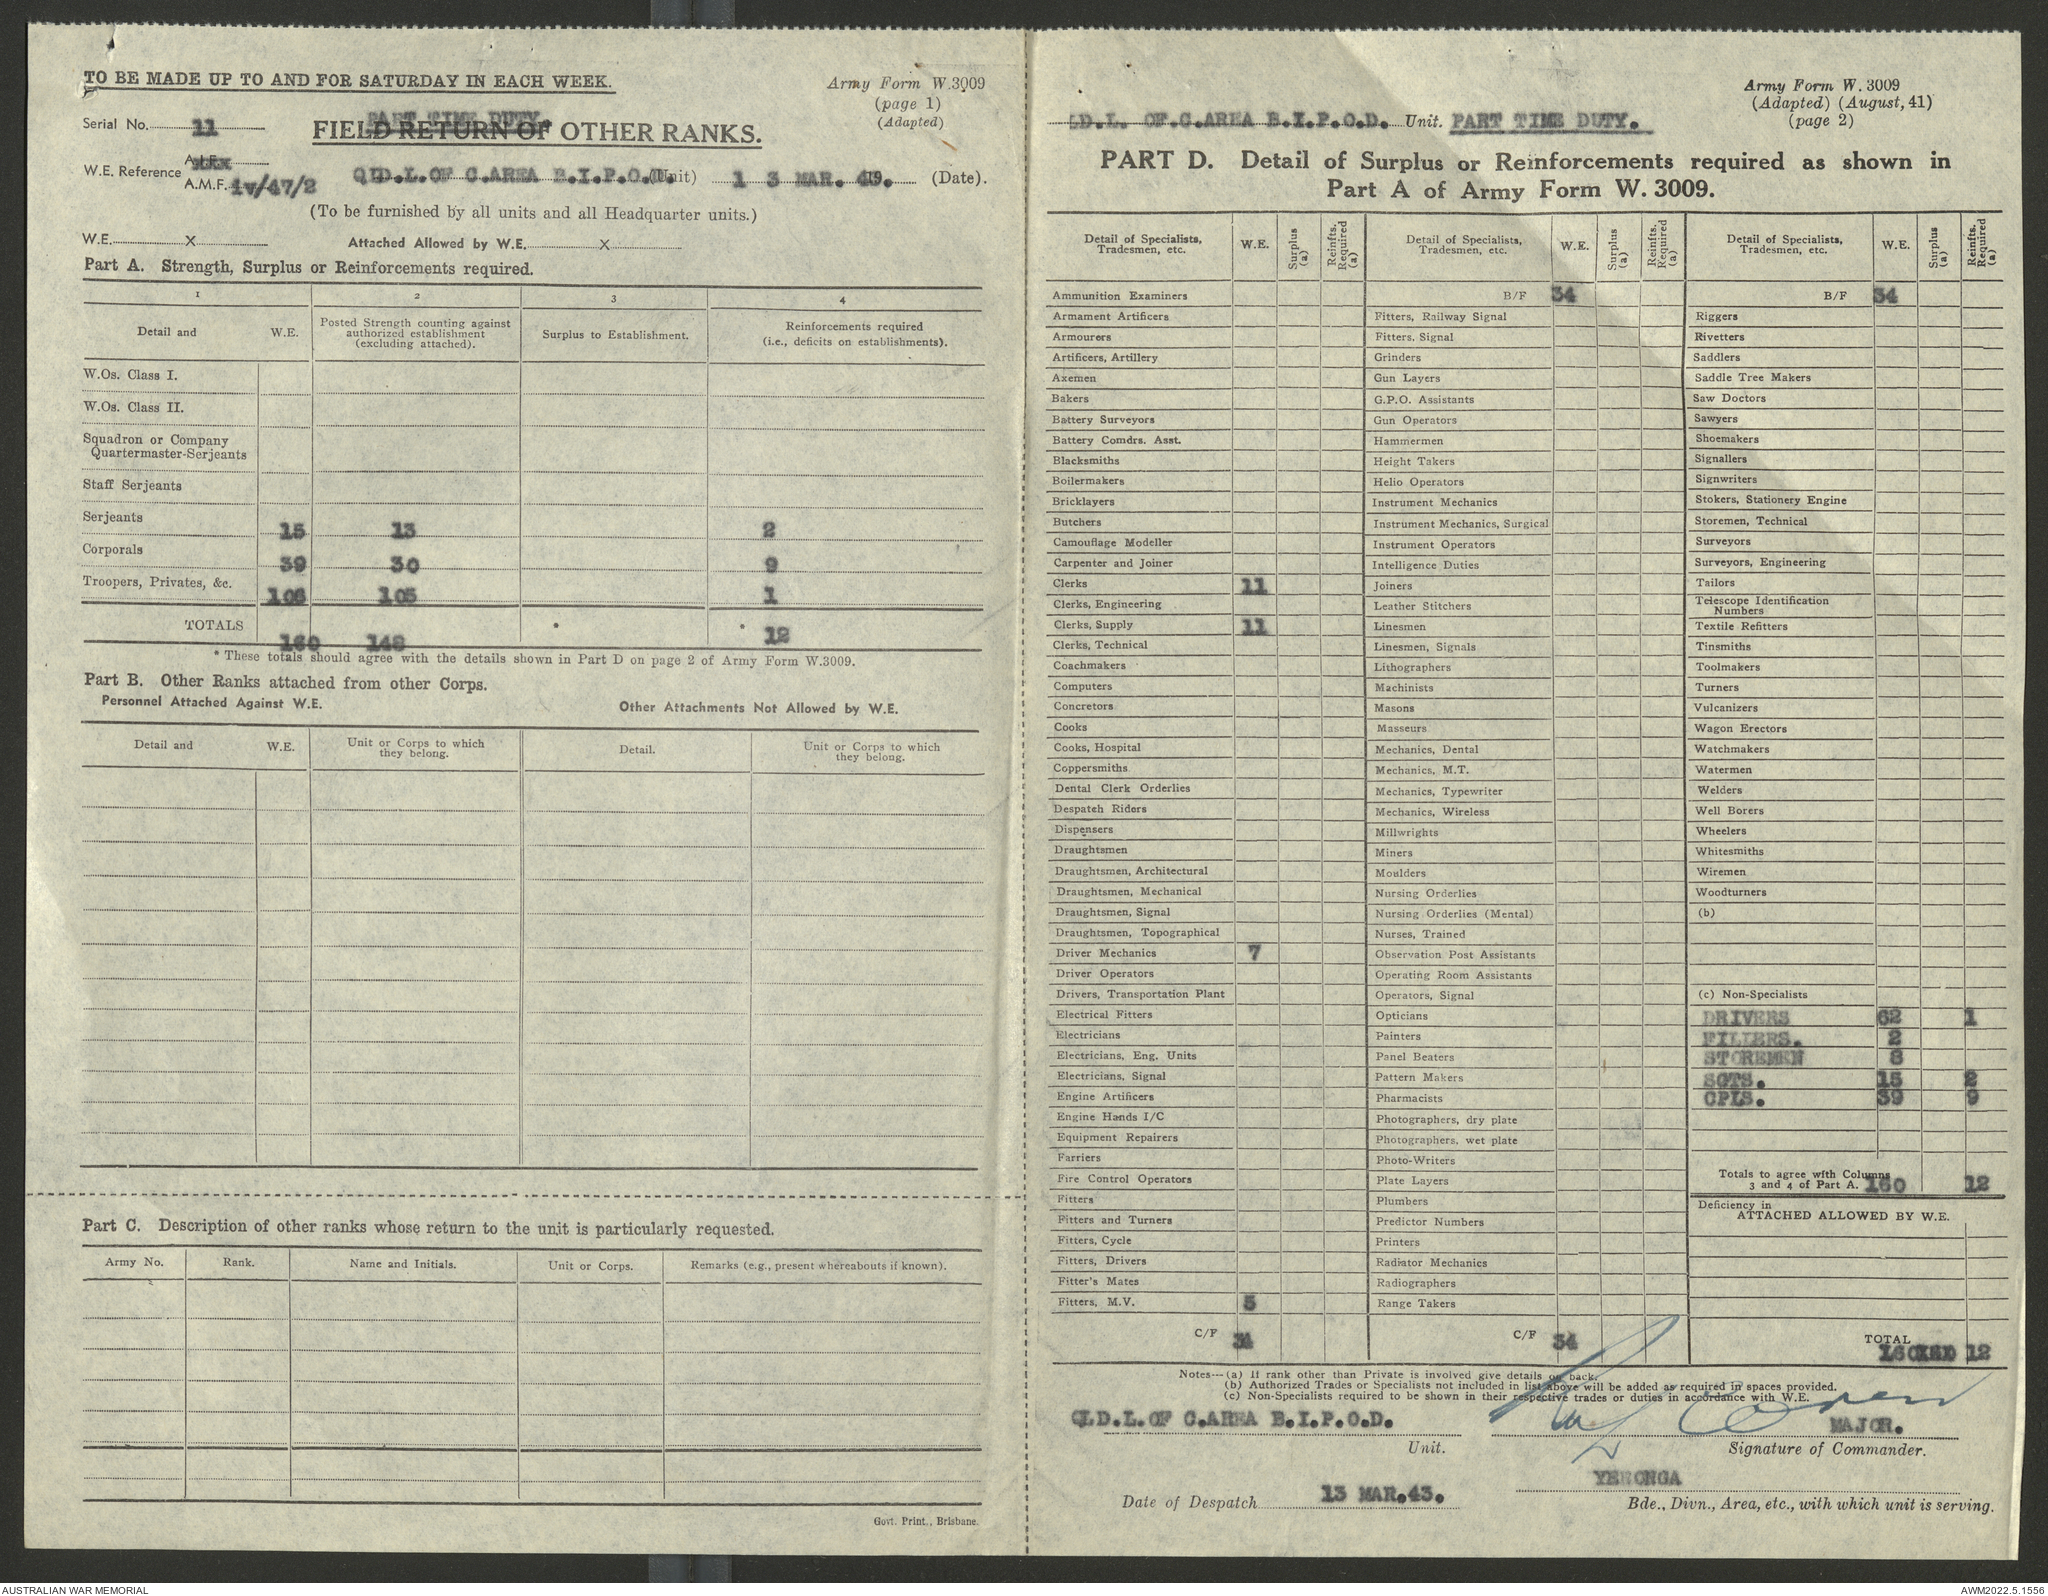 TO BE MADE UP TO AND FOR SATURDAY IN EACH WEEK.
Army Form W.3009
(page 1)
(Adapted)
Serial No. 11
PART TIME DUTY.
FIELD RETURN OF OTHER RANKS.
W.E. Reference
A.I.F.
A.M.F. iv/47/2
QLD.L.OF C.AREA B.I.P.O.D. (Unit) 1 3 MAR. 43. (Date).
(To be furnished by all units and all Headquarter units.)
W.E. X Attached Allowed by W.E. X
Part A. Strength, Surplus or Reinforcements required.
1 2 3 4
Detail and W.E. Posted Strength counting against authorized establishment (excluding attached). Surplus to Establishment. Reinforcements required (i.e., deficits on establishments).
W.Os. Class I.
W.Os. Class II.
Squadron or Company
Quartermaster-Serjeants
Staff Serjeants
Serjeants 15 13 2
Corporals 39 30 9
Troopers, Privates, &c. 106 105 1
TOTALS 160 148 * * 12
* These totals should agree with the details shown in Part D on page 2 of Army Form W.3009.
Part B. Other Ranks attached from other Corps.
Personnel Attached Against W.E. Other Attachments Not Allowed by W.E.
Detail and W.E. Unit or Corps to which they belong. Detail. Unit or Corps to which they belong.
Part C. Description of other ranks whose return to the unit is particularly requested.
Army No. Rank. Name and Initials. Unit or Corps. Remarks (e.g., present whereabouts if known).
Govt. Print., Brisbane.
Army Form W. 3009
(Adapted) (August, 41)
(page 2)
LD.L. OF.C.AREA B.I.P.O.D. Unit. PART TIME DUTY.
PART D. Detail of Surplus or Reinforcements required as shown in
Part A of Army Form W. 3009.
Detail of Specialists, Tradesmen, etc. W.E. Surplus (a) Reinfts. Required (a)
Ammunition Examiners
Armament Artificers
Armourers
Artificers, Artillery
Axemen
Bakers
Battery Surveyors
Battery Comdrs. Asst.
Blacksmiths
Boilermakers
Bricklayers
Butchers
Camouflage Modeller
Carpenter and Joiner
Clerks 11
Clerks, Engineering
Clerks, Supply 11
Clerks, Technical
Coachmakers
Computers
Concretors
Cooks
Cooks, Hospital
Coppersmiths
Dental Clerk Orderlies
Despatch Riders
Dispensers
Draughtsmen
Draughtsmen, Architectural
Draughtsmen, Mechanical
Draughtsmen, Signal
Draughtsmen, Topographical
Driver Mechanics 7
Driver Operators
Drivers, Transportation Plant
Electrical Fitters
Electricians
Electricians, Eng. Units
Electricians, Signal
Engine Artificers
Engine Hands I/C
Equipment Repairers
Farriers
Fire Control Operators
Fitters
Fitters and Turners
Fitters, Cycle
Fitters, Drivers
Fitter's Mates
Fitters, M.V. 5
C/F 34
Detail of Specialists, Tradesmen, etc. W.E. Surplus (a) Reinfts. Required (a)
B/F 34
Fitters, Railway Signal
Fitters. Signal
Grinders
Gun Layers
G.P.O. Assistants
Gun Operators
Hammermen
Height Takers
Helio Operators
Instrument Mechanics
Instrument Mechanics, Surgical
Instrument Operators
Intelligence Duties
Joiners
Leather Stitchers
Linesmen
Linesmen, Signals
Lithographers
Machinists
Masons
Masseurs
Mechanics, Dental
Mechanics, M.T.
Mechanics, Typewriter
Mechanics, Wireless
Millwrights
Miners
Moulders
Nursing Orderlies
Nursing Orderlies (Mental)
Nurses, Trained
Observation Post Assistants
Operating Room Assistants
Operators, Signal
Opticians
Painters
Panel Beaters
Pattern Makers
Pharmacists
Photographers, dry plate
Photographers, wet plate
Photo-Writers
Plate Layers
Plumbers
Predictor Numbers
Printers
Radiator Mechanics
Radiographers
Range Takers
C/F 34
Detail of Specialists, Tradesmen, etc. W.E. Surplus (a) Reinfts. Required (a)
B/F 34
Riggers
Rivetters
Saddlers
Saddle Tree Makers
Saw Doctors
Sawyers
Shoemakers
Signallers
Signwriters
Stokers, Stationery Engine
Storemen, Technical
Surveyors
Surveyors, Engineering
Tailors
Telescope Identification
Numbers
Textile Refitters
Tinsmiths
Toolmakers
Turners
Vulcanizers
Wagon Erectors
Watchmakers
Watermen
Welders
Well Borers
Wheelers
Whitesmiths
Wiremen
Woodturners
(b)
(c) Non-Specialists
DRIVERS 62 1
FILLERS. 2
STOREMEN 8
SGTS. 15 2
CPLS. 39 9
Totals to agree with Columns
3 and 4 of Part A. 160 12
Deficiency in
ATTACHED ALLOWED BY W.E.
TOTAL
160 12
Notes---(a) If rank other than Private is involved give details on back.
(b) Authorized Trades or Specialists not included in list above will be added as required in spaces provided.
(c) Non-Specialists required to be shown in their respective trades or duties in accordance with W.E.
QLD.L.OF C.AREA B.I.P.O.D. MAJOR.
Unit. Signature of Commander.
YERONGA
Date of Despatch 13 MAR.43. Bde., Divn., Area, etc., with which unit is serving.
AUSTRALIAN WAR MEMORIAL AWM2022.5.1556